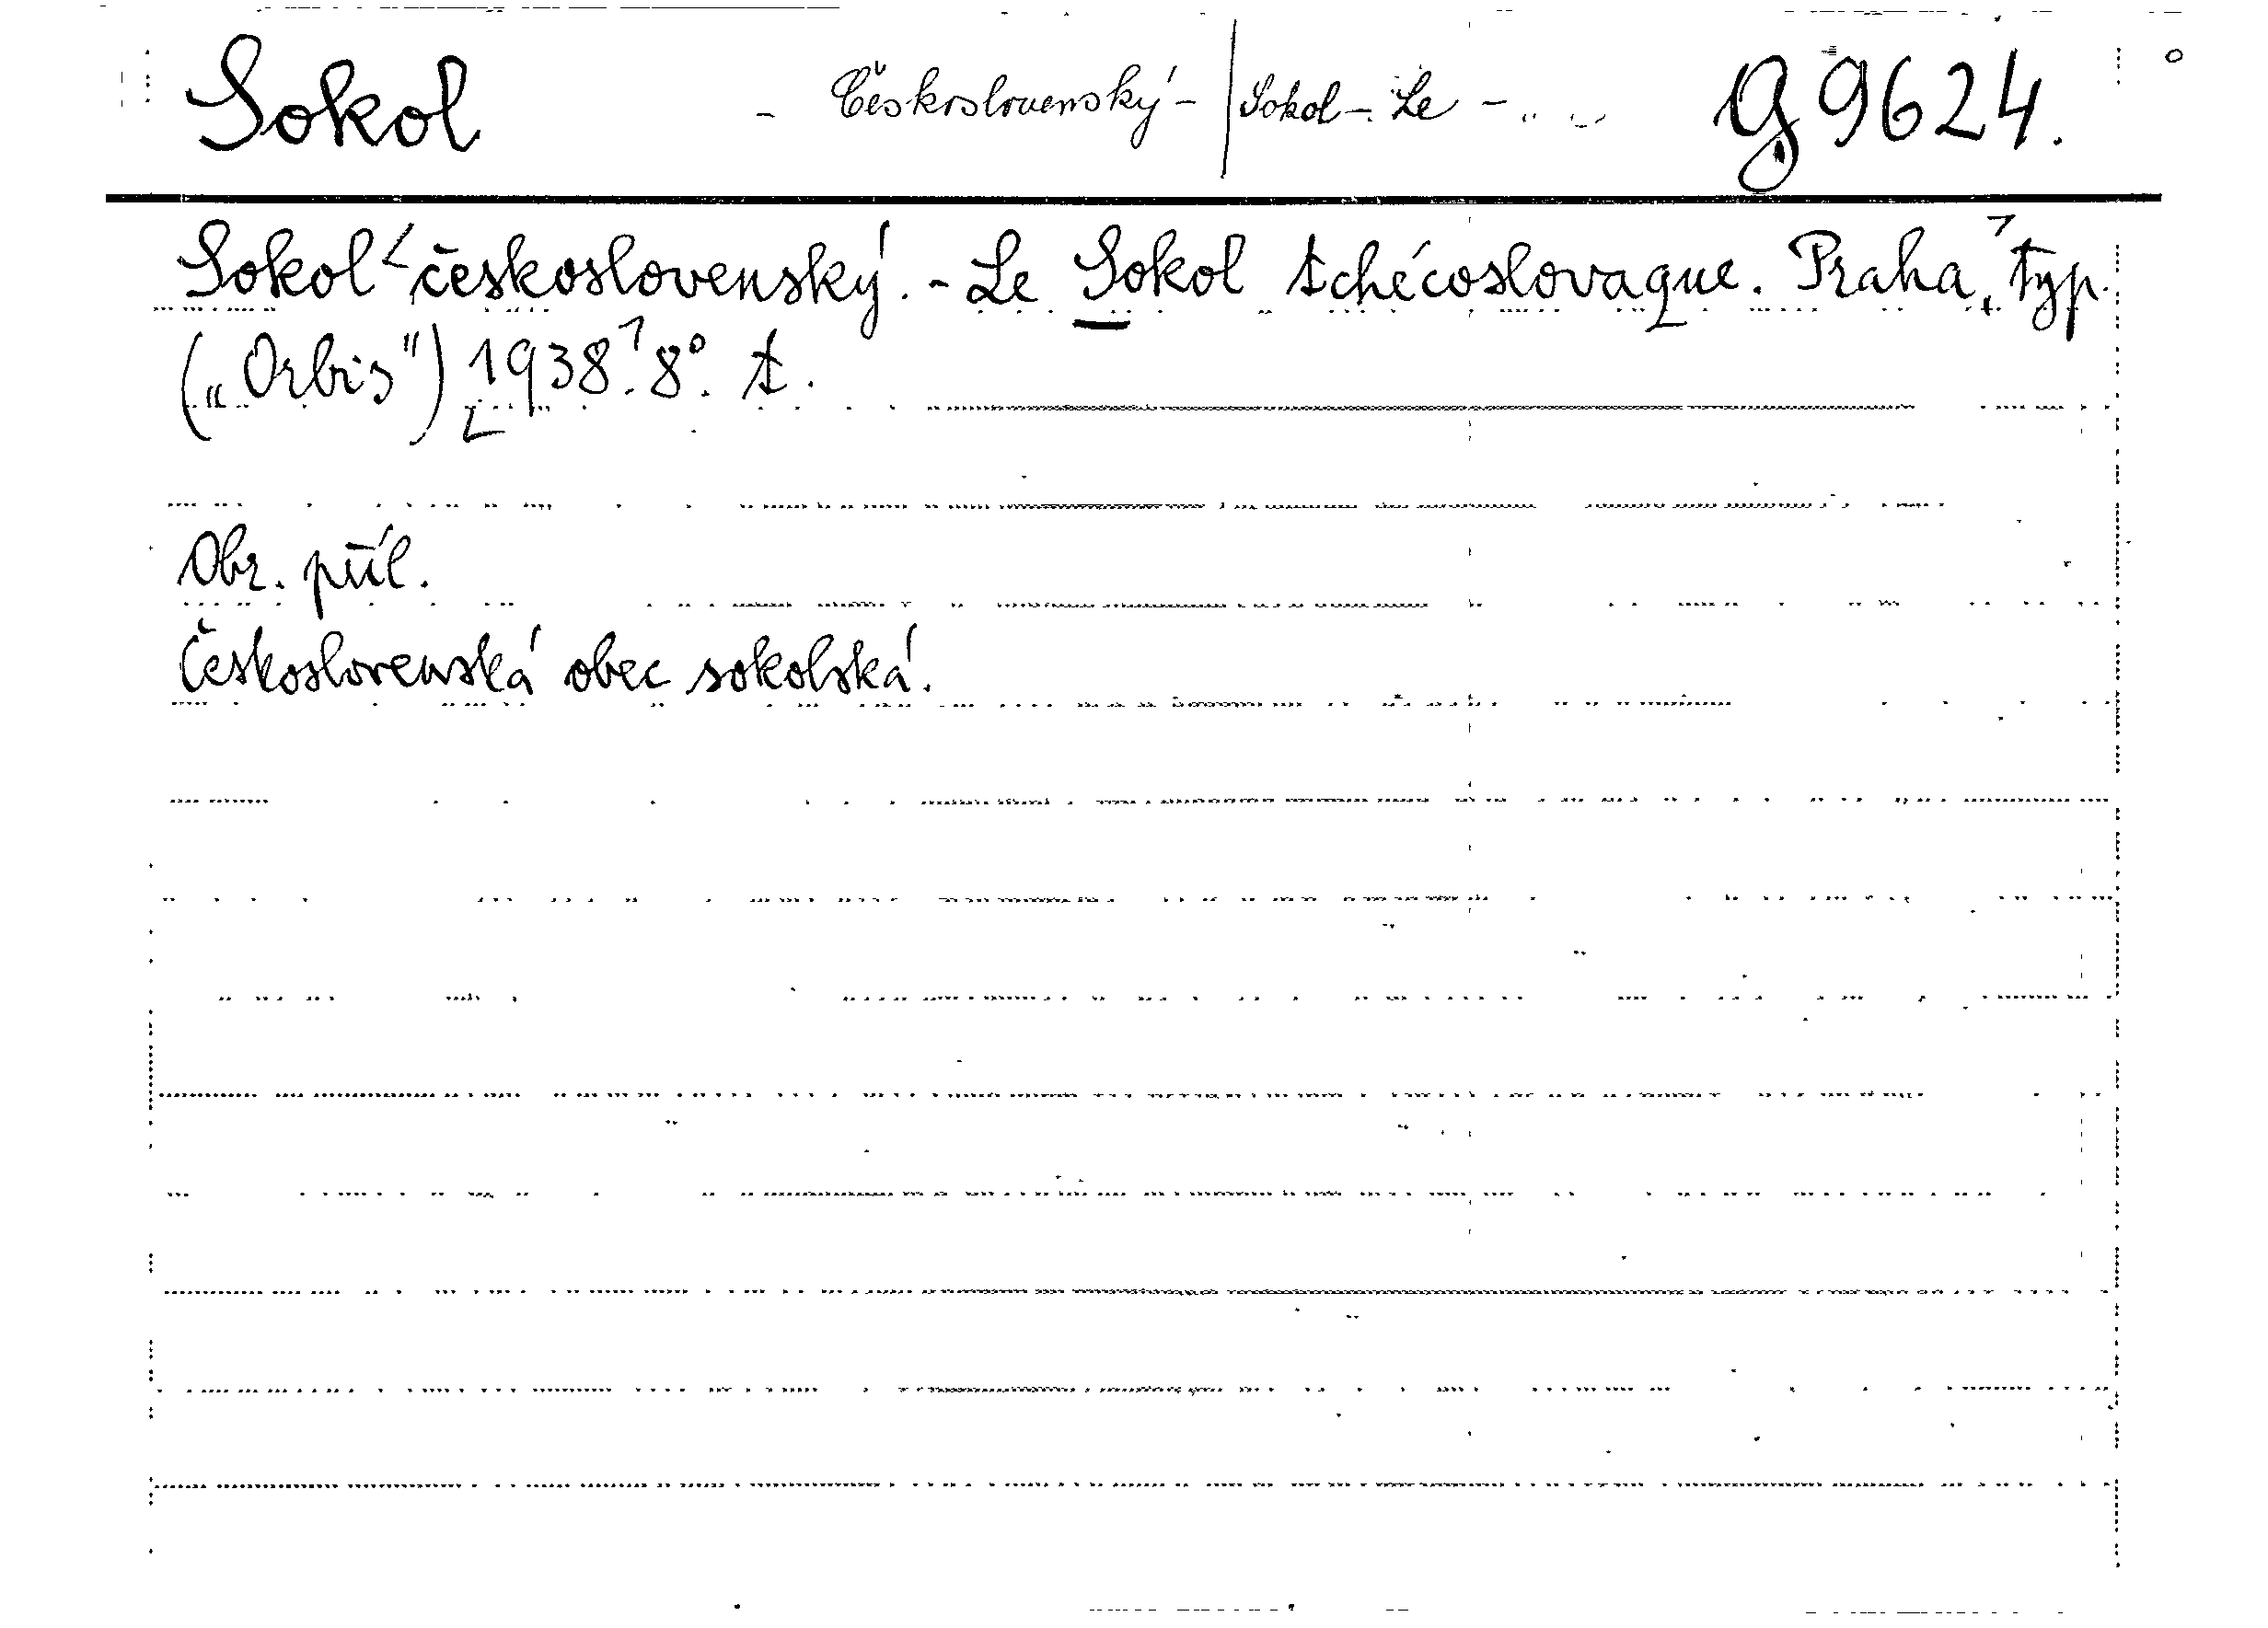 Sokol - Československý - | Sokol - Le - G 9624.
Sokol československý. - Le Sokol tchécoslovaque. Praha, Typ.
(„Orbis") 1938. 8°. t.
Obr. příl.
Československá obec sokolská.